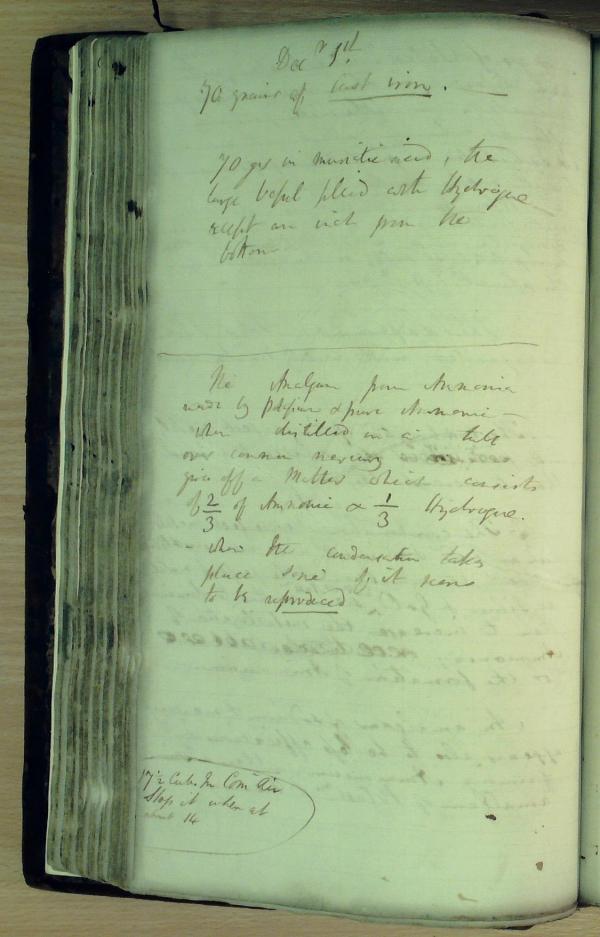 Decr 1st.
70 grains of Cast iron.
70 grs in muriatic acid, the
large vessel filled with Hydrogene
except an inch from the
bottom
The Amalgam from Ammonia
made by Potassium & pure Ammonia —
when distilled in a tube
over common mercury
gives off a Matter which consists
of 2/3 of Ammonia & 1/3 Hydrogene.
– when the condensation takes
place some of it seems
to be reproduced
17½ Cub. In Com Air
Stop it when at
about 14